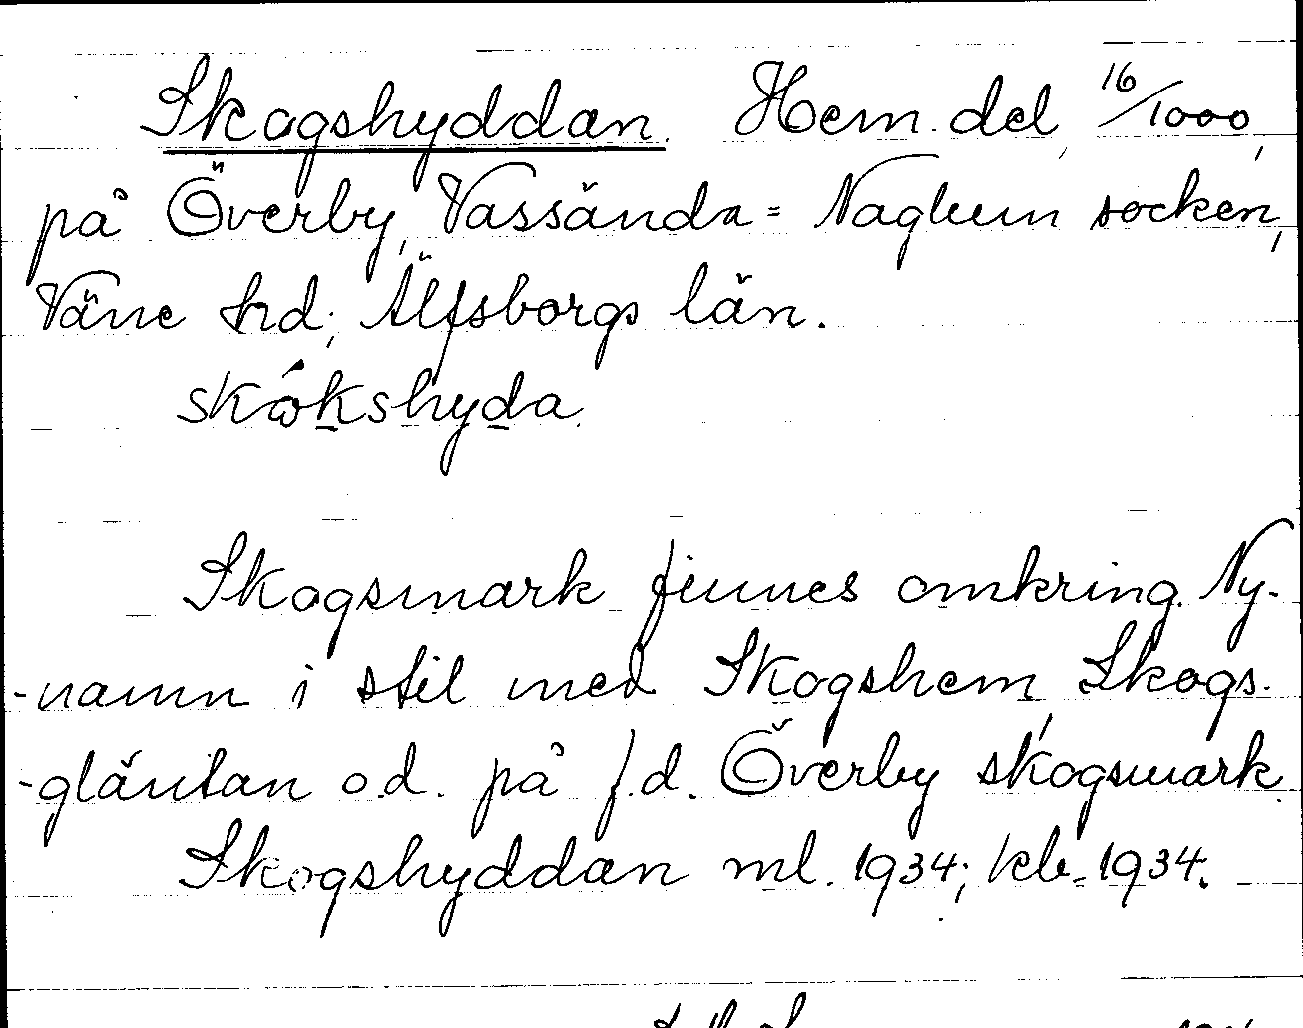 Skogshyddan. Hem. del, 16/1000,
på Överby, Vassända= Naglum socken,
Väne hd; Älfsborgs län.
skókshyda.
Skogsmark finnes omkring. Ny-
-namn i stil med Skogshem, Skogs-
-gläntan o.d. på f.d. Överby skogsmark.
Skogshyddan ml. 1934; kb. 1934.